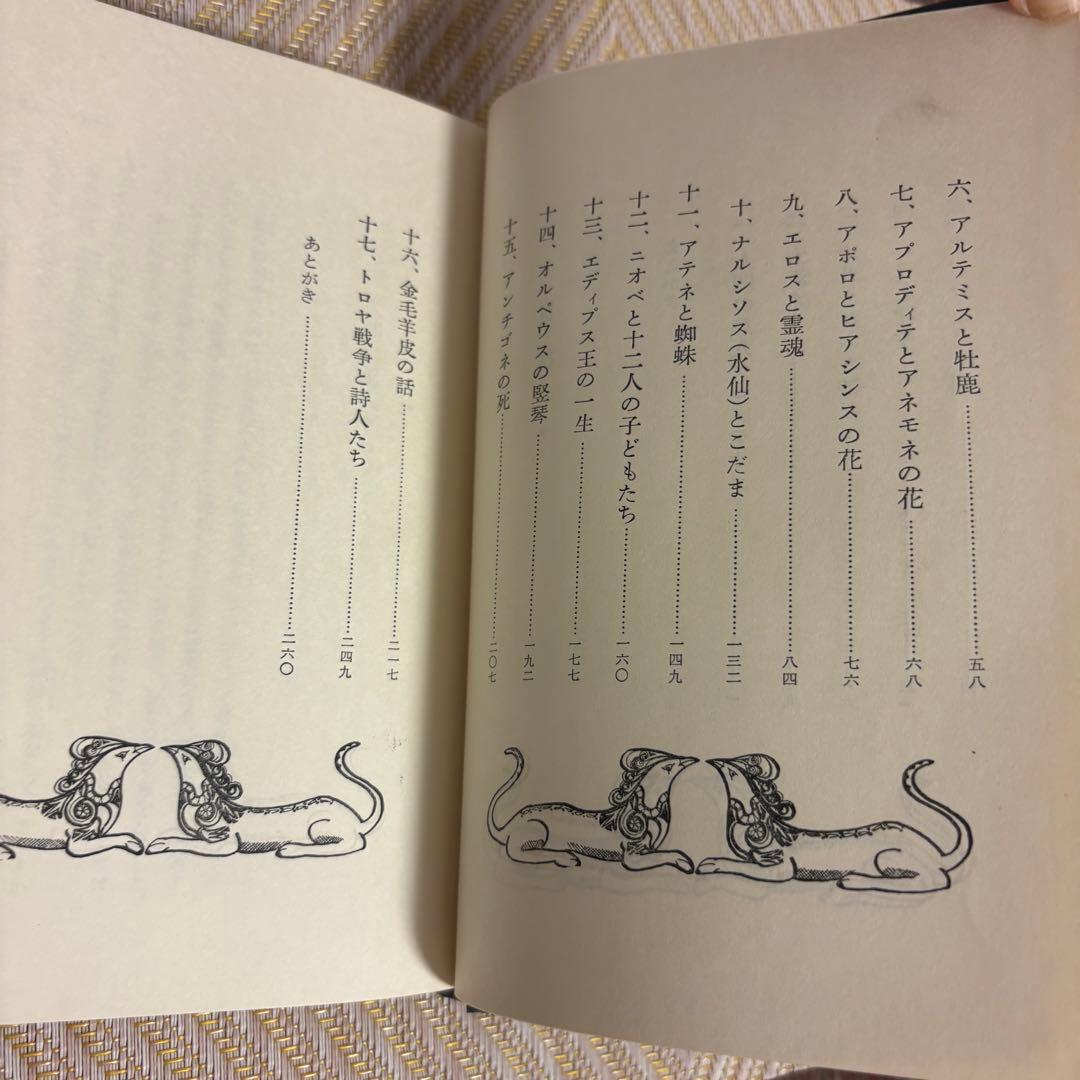 六、アルテミスと牡鹿……………五八
七、アプロディテとアネモネの花……………六八
八、アポロとヒアシンスの花……………七六
九、エロスと霊魂……………八四
十、ナルシソス(水仙)とこだま……………一三二
十一、アテネと蜘蛛……………一四九
十二、ニオベと十二人の子どもたち……………一六〇
十三、エディプス王の一生……………一七七
十四、オルペウスの竪琴……………一九二
十五、アンチゴネの死……………二〇七
十六、金毛羊皮の話……………二一七
十七、トロヤ戦争と詩人たち……………二四九
あとがき……………二六〇